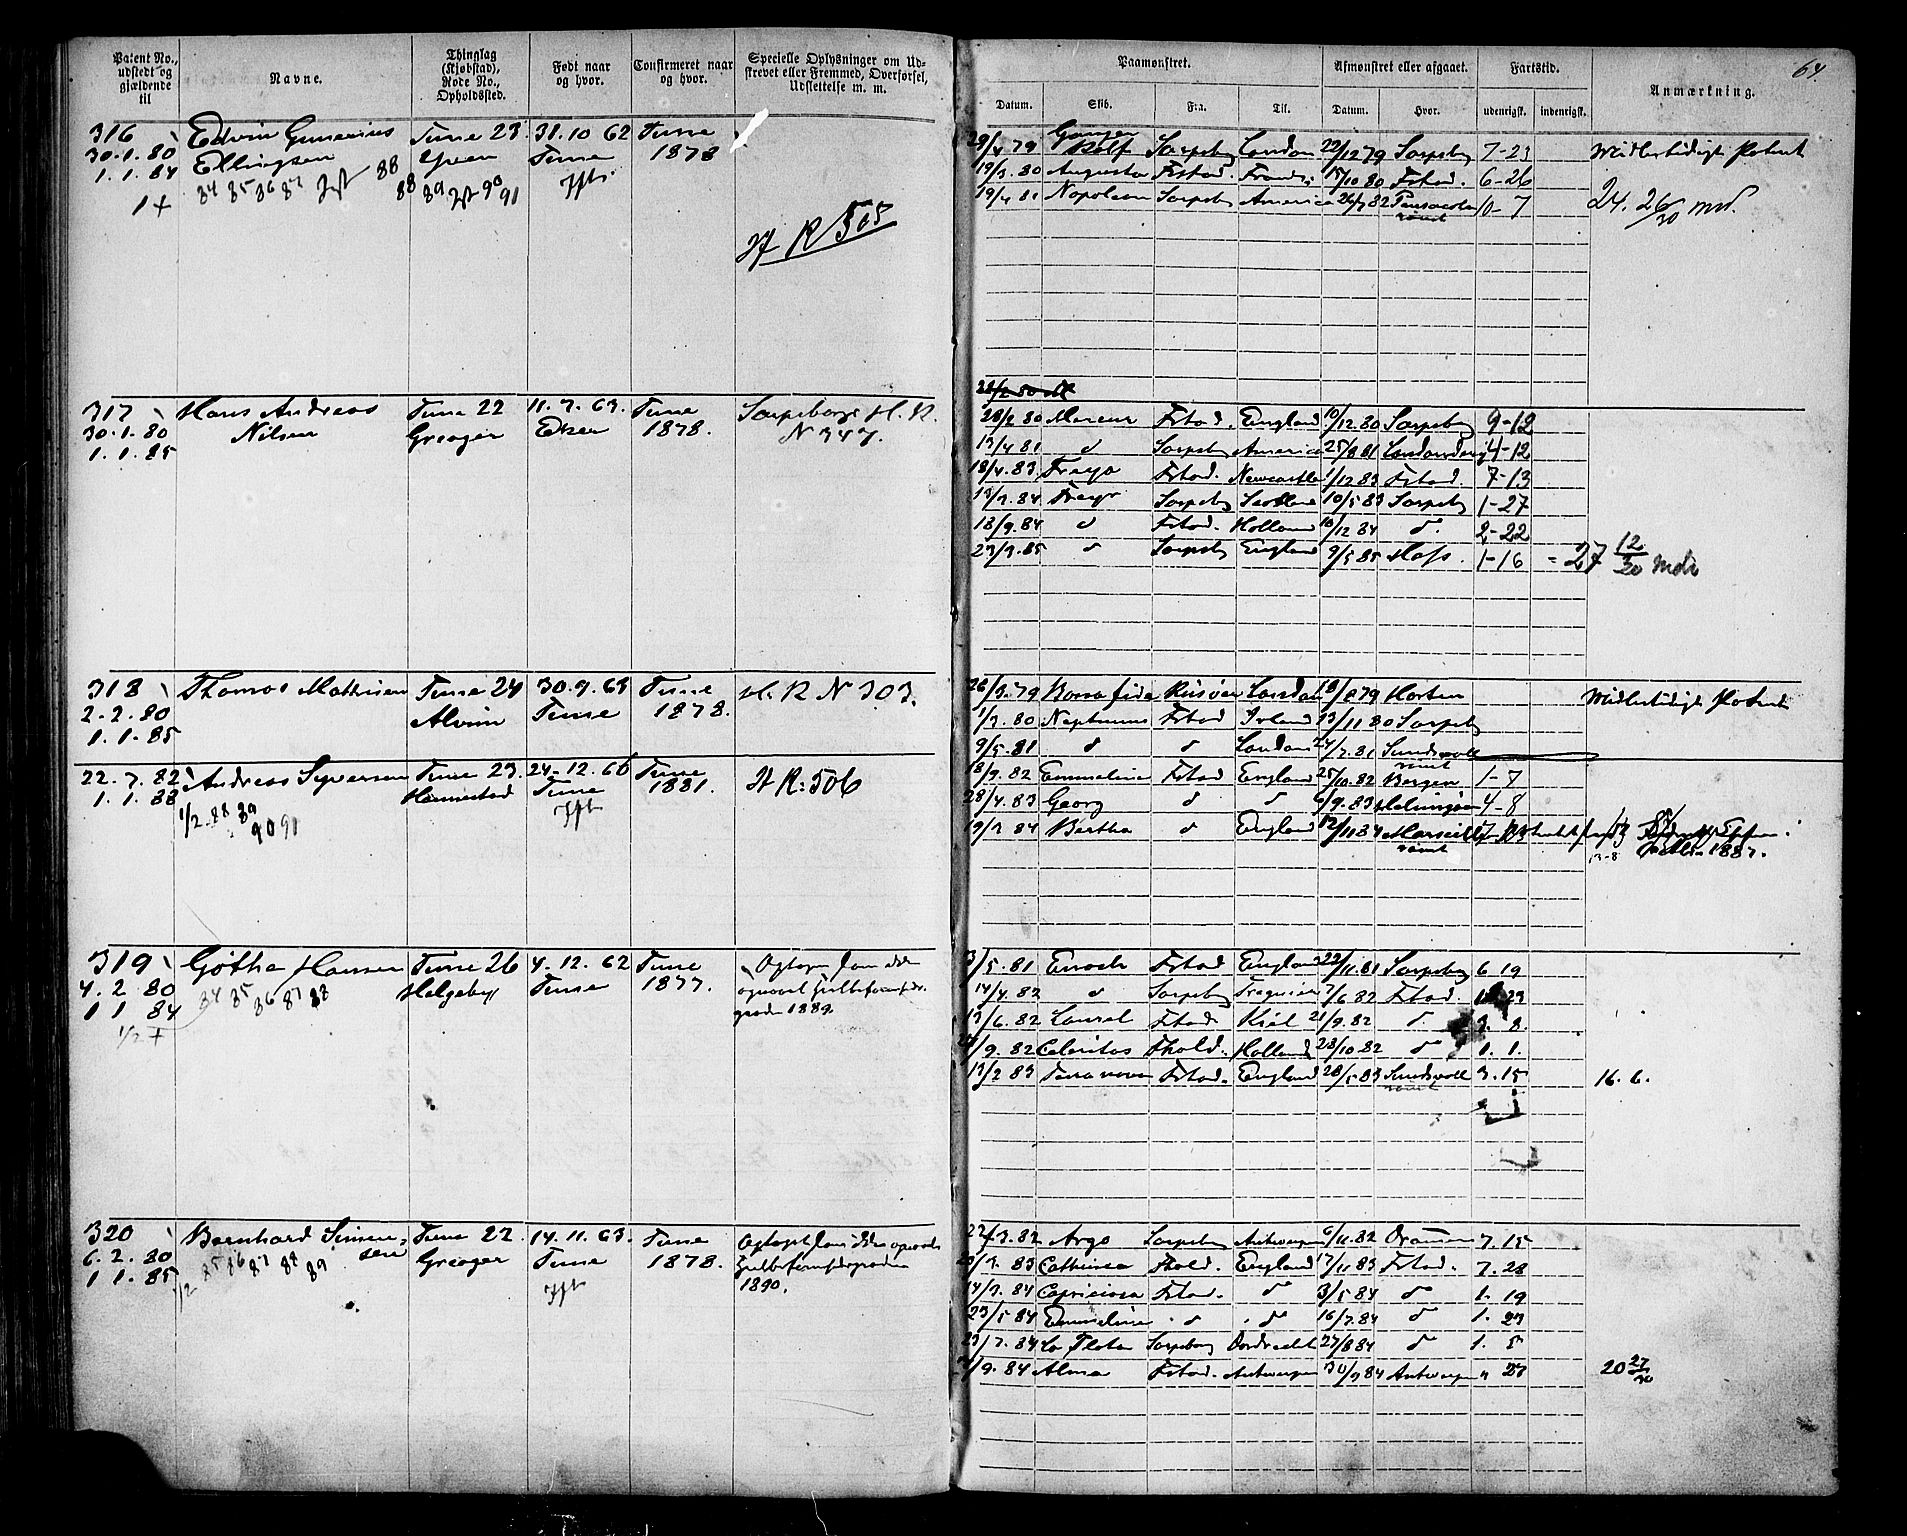 Patent No., udstedt og gjældende til
Navne.
Thinglag (Kjøbstad), Rode No., Opholdssted.
Født naar og hvor.
Confirmeret naar og hvor.
Specielle Oplysninger om Udstrevet eller Fremmed, Overførsel, Udslettelse m. m.
Paamønstret.
Afmønstret eller afgaaet.
Fartstid.
Anmærkning.
64.
Datum. Skib. Fra. Til. Datum. Hvor. udenrigsk. indenrigsk.
316 Edvin Gunerius Tune 23 31.10 62 Tune
30.1.80 Ellingsen Tune 1878
1.1.84 84 85 86 87 88 88 89 90 91
1+
H R 505
29/4 79 Ganger Rolf Sarpsborg London 22/12 79 Sarpsborg 7-23 Midlertidigt Patent
19/3.80 Augusta Fstad. 15/10 80 Fstad. 6-26
19/4 81 Napoleon Sarpsborg America 26/7 82 Pensacola rømt 10-7 24. 26/30 md.
317 Hans Andreas Tune 22 11.7.63. Tune Sarpsborgs H. R.
30.1.80 Nilsen Greager 1878. N 347.
1.1.85
28/2 80 Fstad. England 10/12.80 Sarpsborg 9-12
13/4 81 d Sarpsborg America 25/8 81 Londonderry 4-12
18/4.83 Freya Fstad. Newcastle 1/12 83 Fstad. 7-13
13/3.84 Freya Sarpsborg 10/5 83 Sarpsborg 1-27
18/9.84 d Fstad. Holland 10/12 84 d. 2-22
23/3.85 d Sarpsborg England 9/5 85 Moss. 1-16 = 27 12/30 Mdr
318 Thomas Mathisen Tune 24 30.9.63 Tune H. R N 303.
2.2.80 Alvim Tune 1878.
1.1.85
26/3.79 Bona fide Risøer London 79 Horten Midlertidigt Patent
1/3.80 Neptunus Fstad Irland 13/11 80 Sarpsborg
9/5.81 d d London 24/7.81 Sundsvall rømt
22.7.82 Andreas Syversen Tune 23. 24-12.66 Tune H R: 506
1.1.88 Hannestad Tune 1881.
1/2-88 89
90 91
8/9.82 Emmeline Fstad England 25/10.82 Bergen 1-7
28/4.83 Georg d d 6/9.83 Helsingør 4-8
19/3 84 Bertha d England 12/11 84 Marseille rømt
13-8 1887.
319 Gøthe Hansen Tune 26 4.12.62 Tune Optagen som ikke
4.2 80 84 85 86 87 88 Helgeby Tune 1877. opnaaet Hielbefarenhedsgraden 1889.
1 1 84
1/2 +
3/5.81 Enoch Fstad England 22/11.81 Sarpsborg 6 19
14/4.82 d Sarpsborg 7/6 82 Fstad. 1 23
13/6.82 Laurel Fstad Kiel 21/9.82 d. 3. 8.
/9.82 Celeritas Fhald. Holland 28/10 82 d 1. 1.
13/2 83 Terra nova Fstad. England 28/5 83 Sundsvall rømt 3.15 16. 6.
320 Bernhard Simensen Tune 22. 14.11.63. Tune
6.2.80 85 86 87 88 89 Greager Tune 1878.
1 1.85
1/2
Optagen som ikke opnaaet Hielbefarenhedsgraden 1890.
22/3.82 Argo Sarpsborg Antwerpen 6/11.82 Drammen 7.15
83 Cathinca Fhald. England 17/11 83 Fstad. 7.28
14/3.84 Capriciosa Fstad. d 3/5 84 d 1. 19
23/5 84 Emmeline d d 16/7.84 d 1. 23
23/7.84 La Plata Sarpsborg Dordrecht 27/8 84 d 1. 5
/9.84 Alma Fstad. Antwerpen 30/9 84 Antwerpen " 27 20 27/30